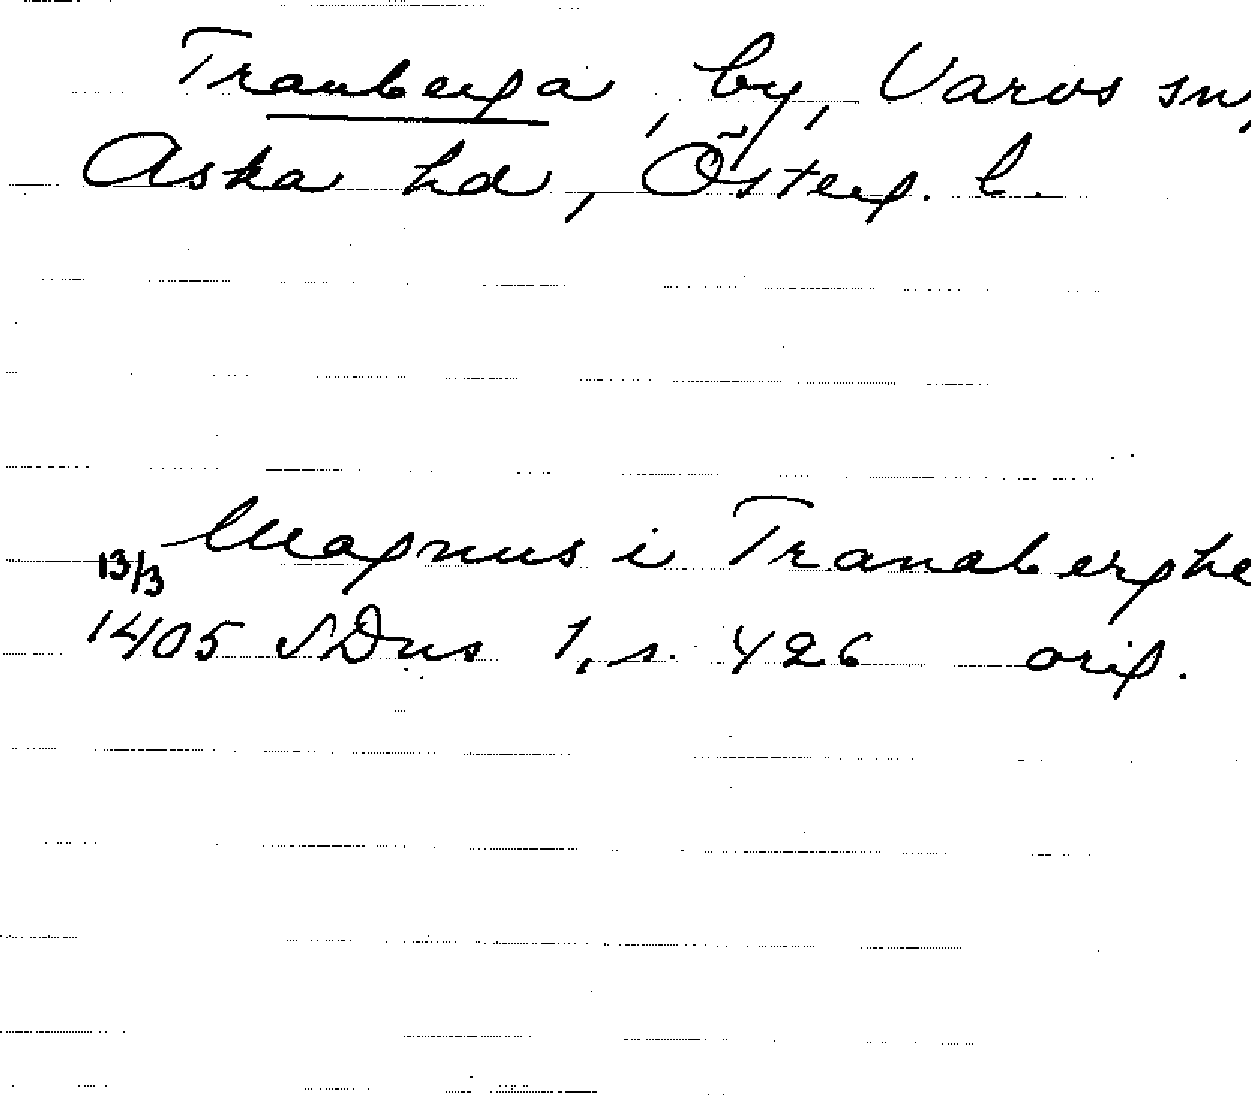 Tranberga, by, Varvs sn,
Aska hd, Österg. l.
Magnus i Tranaberghe
13/3 1405 SDns 1, s. 426 orig.